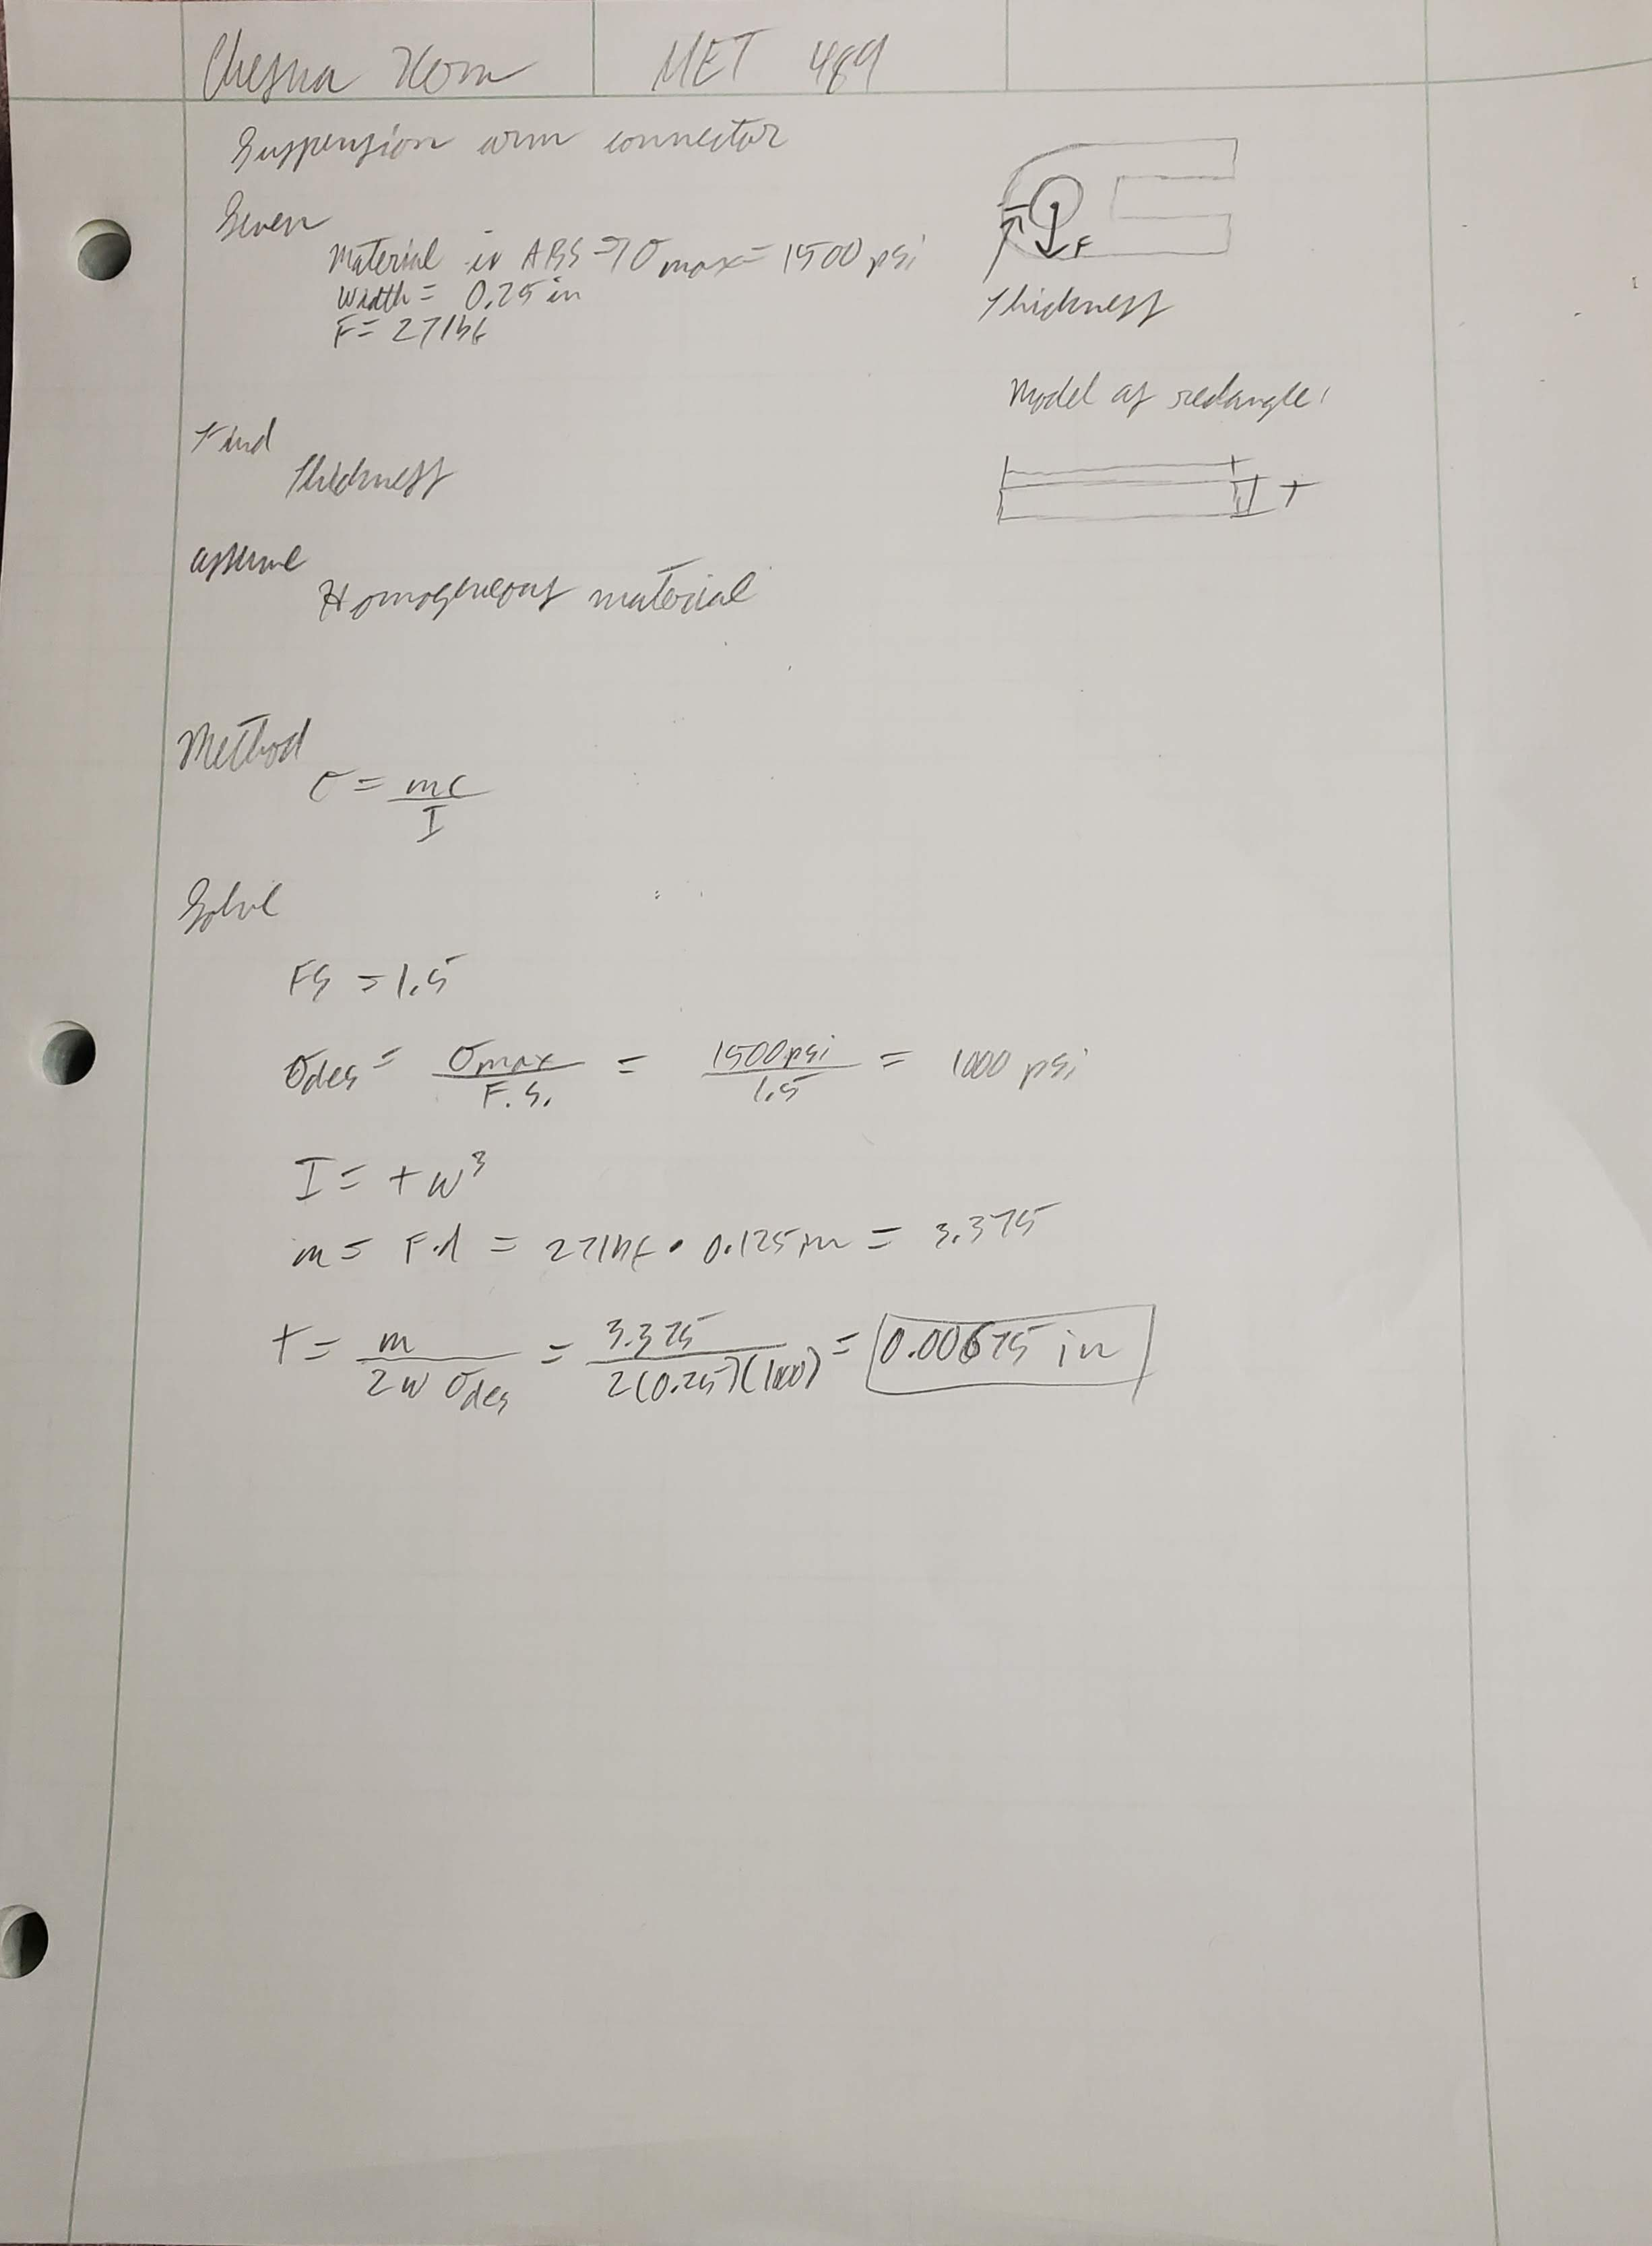 MET 489
Suspension arm connector
Given
Material is ABS => σmax = 1500 psi
Width = 0.25 in
F = 27 lbf
F
Thickness
Model as rectangle:
t
Find
Thickness
assume
Homogeneous material
Method
σ = mc/I
Solve
FS = 1.5
σdes = σmax/F.S. = 1500psi/1.5 = 1000 psi
I = tw³
m = F·d = 27lbf · 0.125in = 3.375
t = m/2w σdes = 3.375/2(0.25)(1000) = 0.00675 in